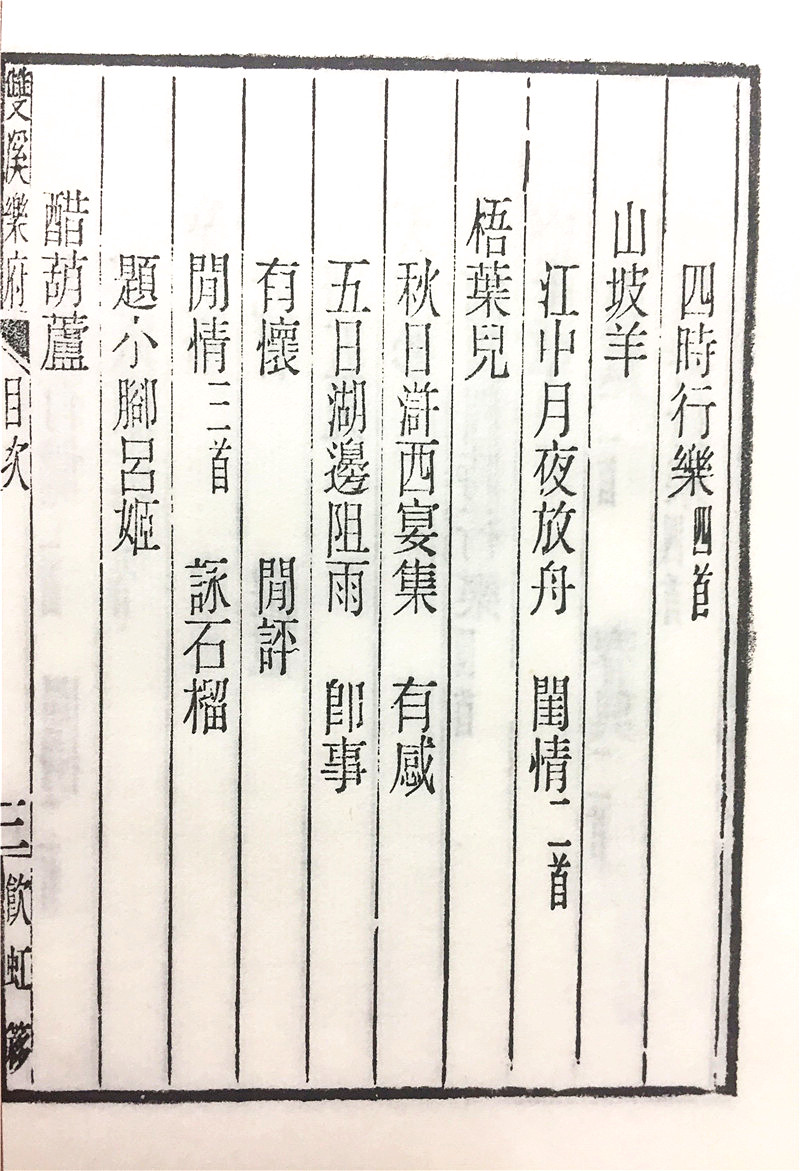 四時行樂四首
山坡羊
江中月夜放舟　閨情二首
梧葉兒
秋日滸西宴集　有感
五日湖邊阻雨　即事
有懷　閒評
閒情三首　詠石榴
題小腳呂姬
醋葫蘆
雙溪樂府　目次　三　飲虹簃